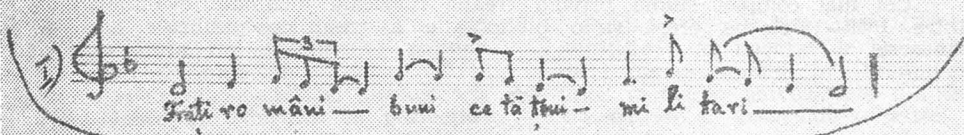 I)
3
Frați ro mâni— buni ce tă țeni— mi li tari—